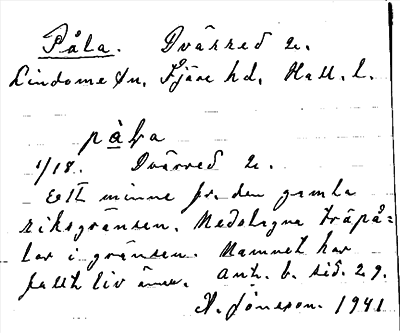 Påla. Dvärred 2.
Lindome sn. Fjäre hd. Hall. l.
påla
1/18. Dvärred 2.
Ett minne fr. den gamla
riksgränsen. Nedslagna träpå-
lar i gränsen. Namnet har
fått liv ännu. Ant. b. sid. 29.
Jönsson. 1941